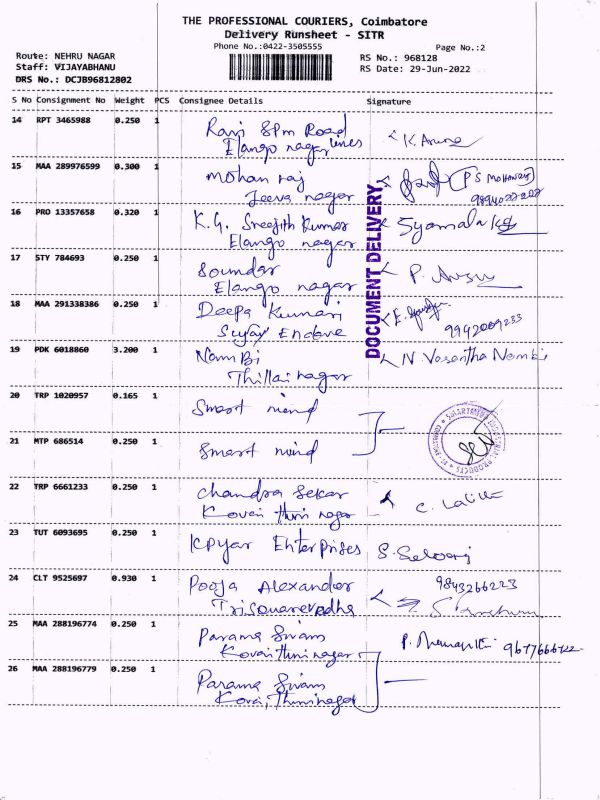 THE PROFESSIONAL COURIERS, Coimbatore
Delivery Runsheet - SITR
Phone No.:0422-3505555
Page No.:2
Route: NEHRU NAGAR
RS No.: 968128
Staff: VIJAYABHANU
RS Date: 29-Jun-2022
DRS No.: DCJB96812802
S No Consignment No Weight PCS Consignee Details Signature
14 RPT 3465988 0.250 1 Ravi Spm Road
Elango nagar
15 MAA 289976599 0.300 1 mohan raj
Jeeva nagar
16 PRO 13357658 0.320 1 K.G. Sreejith Kumar Syamala
Elango nagar
17 STY 784693 0.250 1 Soundar
Elango nagar
18 MAA 291338386 0.250 1 Deepa Kumari
9942009233
19 PDK 6018860 3.200 1 Nambi N Vasantha Nambi
Thillai nagar
DOCUMENT DELIVERY
20 TRP 1020957 0.165 1 Smart mind
21 MTP 686514 0.250 1 Smart mind
22 TRP 6661233 0.250 1 Chandra Sekar
Kovai thiru nagar
23 TUT 6093695 0.250 1 Enterprises
24 CLT 9525697 0.930 1 Pooja Alexander 9843266223
25 MAA 288196774 0.250 1 Parama Sivam
Kovai thiru nagar
26 MAA 288196779 0.250 1 Parama Sivam
Kovai, Thirunagar